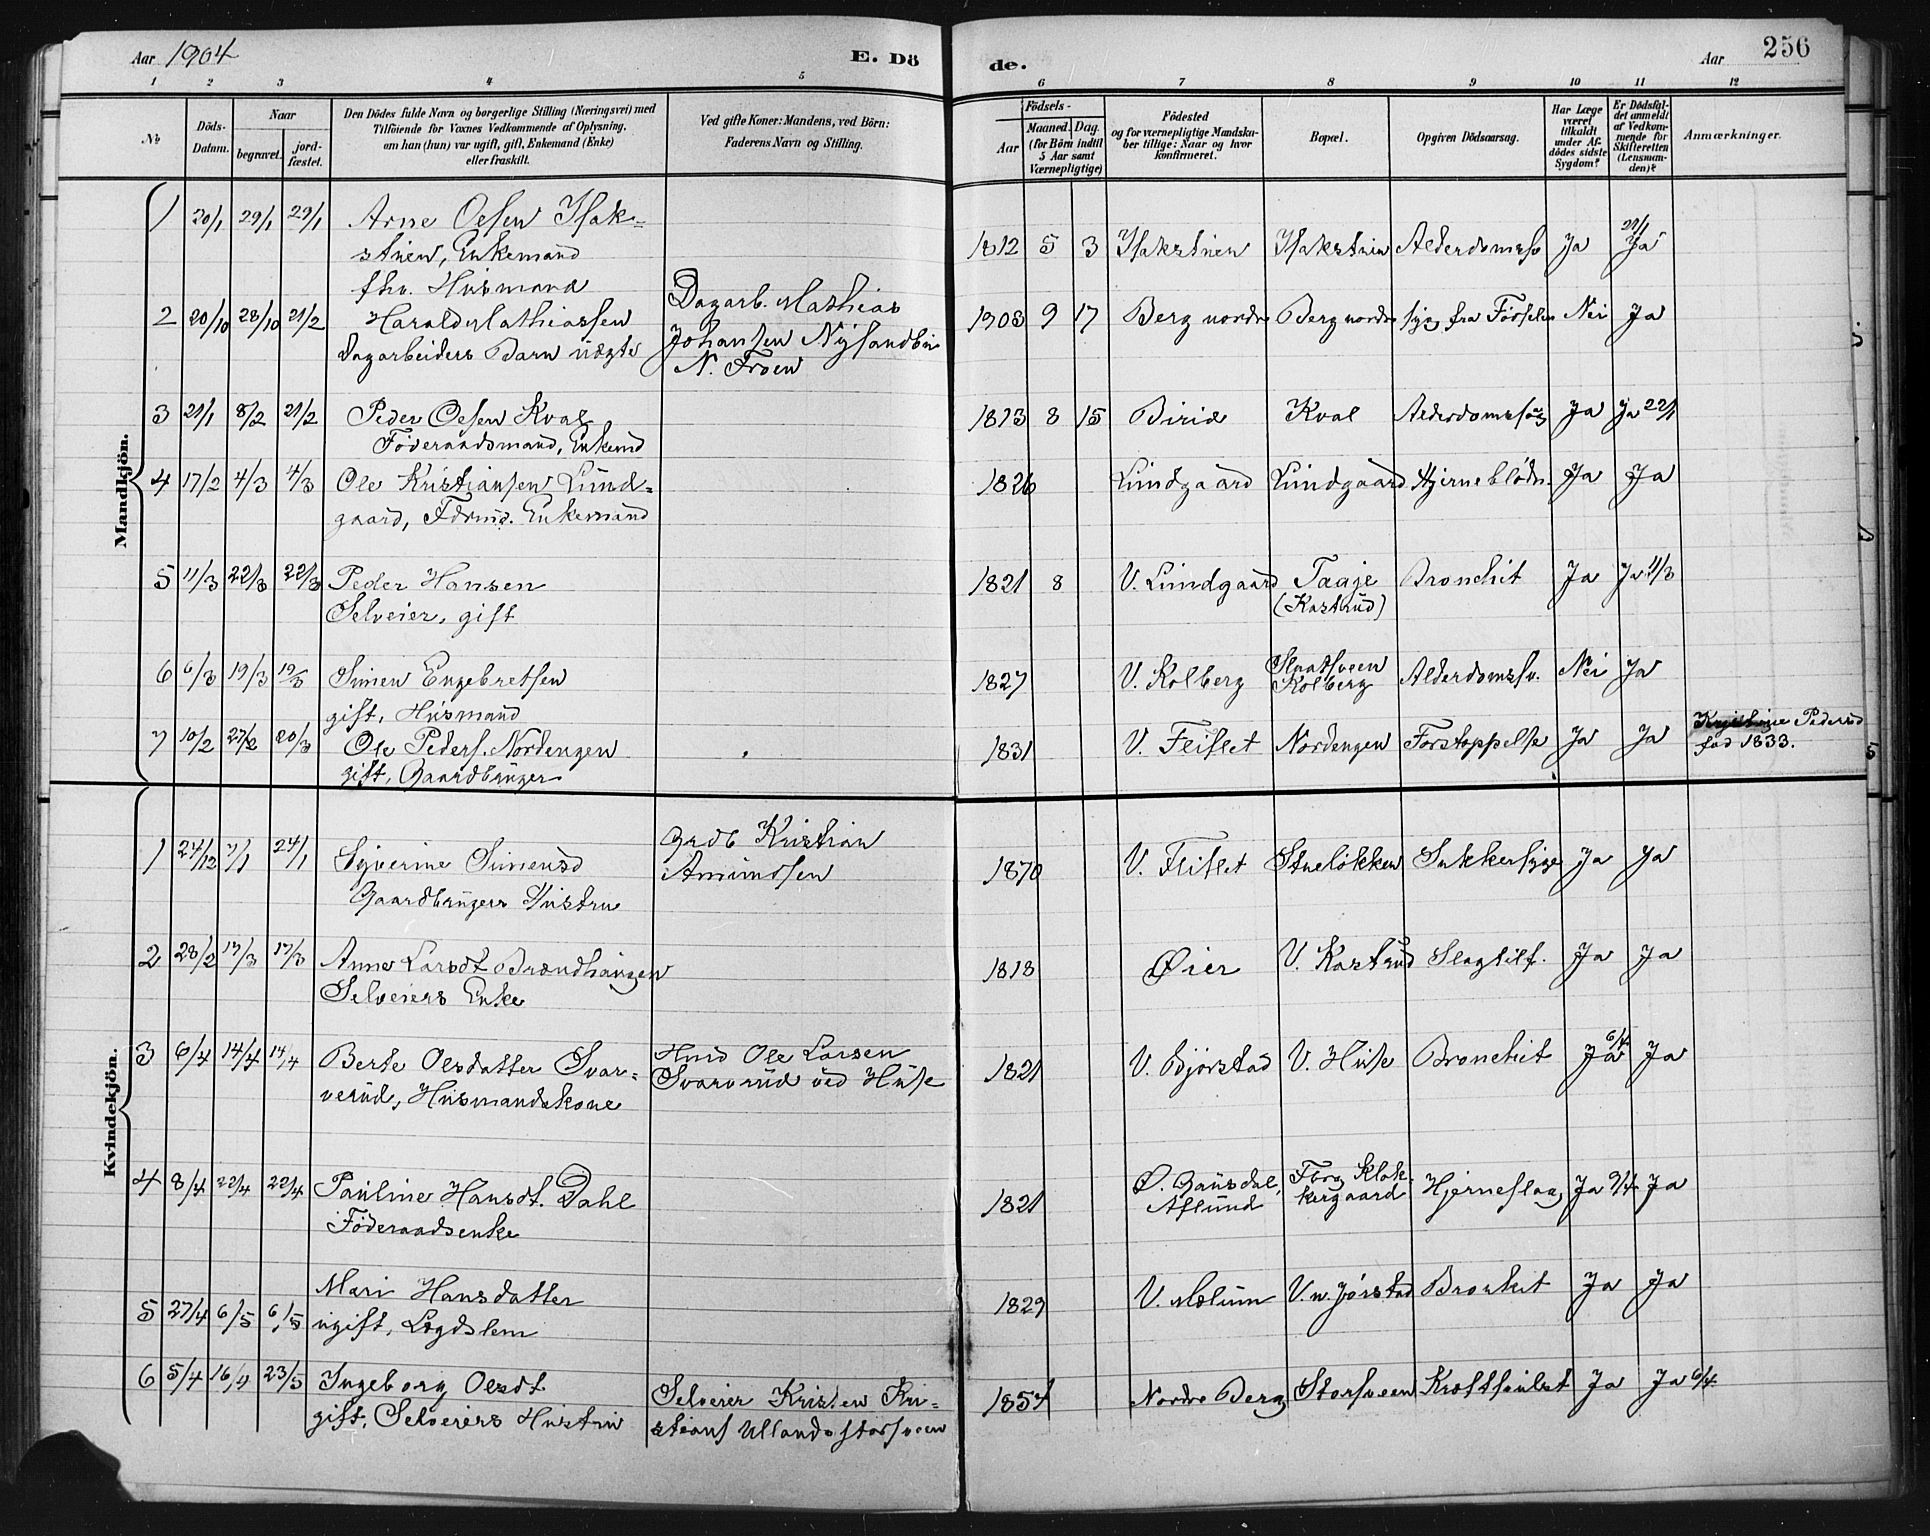 Aar 1904
E. Dö
de.
Aar
256
1 2 3 4 5 6 7 8 9 10 11 12
No
Döds-Datum.
Naar
begravet.
jord-fæstet.
Den Dödes fulde Navn og borgerlige Stilling (Næringsvei) med
Tilföiende for Voxnes Vedkommende af Oplysning,
om han (hun) var ugift, gift, Enkemand (Enke)
eller fraskilt.
Ved gifte Koner: Mandens, ved Börn:
Faderens Navn og Stilling.
Födsels-
Aar
Maaned. Dag.
(for Börn indtil
5 Aar samt
Værnepligtige)
Födested
og for værnepligtige Mandska-
ber tillige: Naar og hvor
konfirmeret.
Bopæl.
Opgiven Dödsaarsag.
Har Læge
været
tilkaldt
under Af-
dödes sidste
Sygdom?
Er Dödsfal-
det anmeldt
af Vedkom-
mende for
Skifteretten
(Lensman-
den)?
Anmærkninger.
Mandkjön.
1 20/1 29/1 29/1 Arne Olsen Isak-
stuen, Enkemand
fhv. Husmand
1812 5 3 Isakstuen Isakstuen Alderdomssv. Ja 21/1 Ja
2 20/10 28/10 21/2 Harald Mathiassen
Dagarbeiders Barn uægte
Dagarb. Mathias
Johansen Nysandbu
N. Froen
1903 9 17 Berg nordre Berg nordre syg fra Födselen Nei Ja
3 21/1 8/2 21/2 Peder Olsen Kval
Föderaadsmand, Enkemd
1813 8 15 Birid Kval Alderdomssvag Ja Ja 22/1
4 17/2 4/3 4/3 Ole Kristiansen Lund-
gaard, Fdrmd. Enkemand
1826 Lundgaard Lundgaard Hjerneblödn. Ja Ja
5 11/3 22/3 22/3 Peder Hansen
Selveier, gift
1821 8 V. Lundgaard Taaje
(Kastrud) Bronchit Ja Ja 11/3
6 6/3 19/3 19/3 Simen Engebretsen
gift, Husmand
1827 V. Kolberg Slaatsveen
Kolberg Alderdomssv. Nei Ja
7 10/2 27/2 20/3 Ole Peders. Nordengen
gift, Gaardbruger
1831 V. Fliflet Nordengen Forstoppelse Ja Ja Pedersd
fød 1833.
Kvindekjön.
1 24/12 7/1 24/1 Syverine Simensd
Gaardbrugers Hustru
Grdb Kristian
Amundsen
1870 V. Fliflet Stuelökken Sukkersyge Ja Ja
2 28/2 17/3 17/3 Anne Larsdt Brændhaugen
Selveiers Enke
1818 Øier V. Kastrud Slagtilf. Ja Ja
3 6/4 14/4 14/4 Berte Olsdatter Svar-
verud, Husmandskone
Hmd Ole Larsen
Svarvrud ved Huse
1821 V. Bjørstad V. Huse Bronchit Ja 6/4 Ja
4 8/4 22/4 22/4 Pauline Hansdt. Dahl
Föderaadsenke
1821 Ø. Gausdal,
Aflund Fbrg Klok-
kergaard Hjerneslag Ja 9/4 Ja
5 27/4 6/5 6/5 Mari Hansdatter
ugift, Lægdslem
1829 V. Mælum V. n. Jørstad Bronkit Ja Ja
6 5/4 16/4 23/5 Ingeborg Olsdt.
gift, Selveiers Hustru
Selveier Kristen Kri-
stians Ullands storsveen
1857 Nordre Berg Storsveen Kræftsvulst Ja Ja 6/4